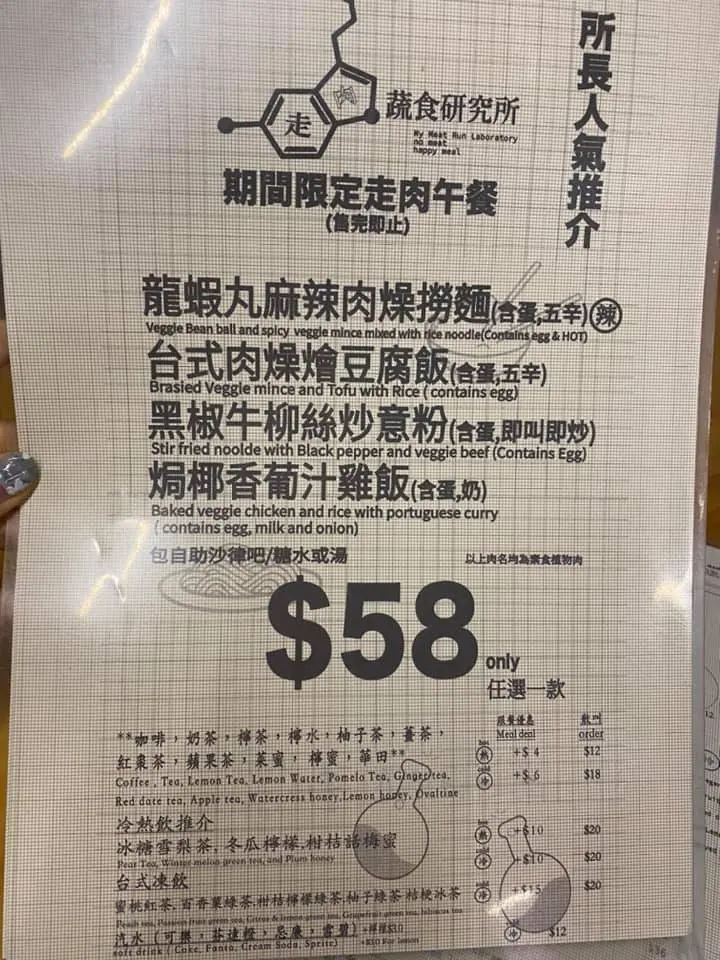 所長人氣推介
肉
走
蔬食研究所
My Meat Run Laboratory
no meat
happy meal
期間限定走肉午餐
(售完即止)
龍蝦丸麻辣肉燥撈麵(含蛋,五辛)辣
Veggie Bean ball and spicy veggie mince mixed with rice noodle(Contains egg & HOT)
台式肉燥燴豆腐飯(含蛋,五辛)
Brasied Veggie mince and Tofu with Rice ( contains egg)
黑椒牛柳絲炒意粉(含蛋,即叫即炒)
Stir fried noolde with Black pepper and veggie beef (Contains Egg)
焗椰香葡汁雞飯(含蛋,奶)
Baked veggie chicken and rice with portuguese curry
( contains egg, milk and onion)
包自助沙律吧/糖水或湯
以上肉名均為素食植物肉
$58
only
任選一款
跟餐優惠 散叫
Meal deal order
**咖啡，奶茶，檸茶，檸水，柚子茶，薑茶，
紅棗茶，蘋果茶，菜蜜，檸蜜，華田**
熱 +$ 4 $12
冷 +$ 6 $18
Coffee , Tea, Lemon Tea, Lemon Water, Pomelo Tea, Ginger tea,
Red date tea, Apple tea, Watercress honey,Lemon honey, Ovaltine
冷熱飲推介
冰糖雪梨茶, 冬瓜檸檬,柑桔話梅蜜
熱 +$10 $20
冷 +$10 $20
Pear Tea, Winter melon green tea, and Plum honey
台式凍飲
蜜桃紅茶,百香菓綠茶,柑桔檸檬綠茶,柚子綠茶,桔梗冰茶
冷 +$15 $20
Peach tea, Passion fruit green tea, Citrus & lemon green tea, Grapefruit green tea, hibiscus tea
汽水 (可樂，芬達橙，忌廉，雪碧) +檸檬$10
冷 $12
soft drink ( Coke, Fanta, Cream Soda, Sprite) +$10 For lemon